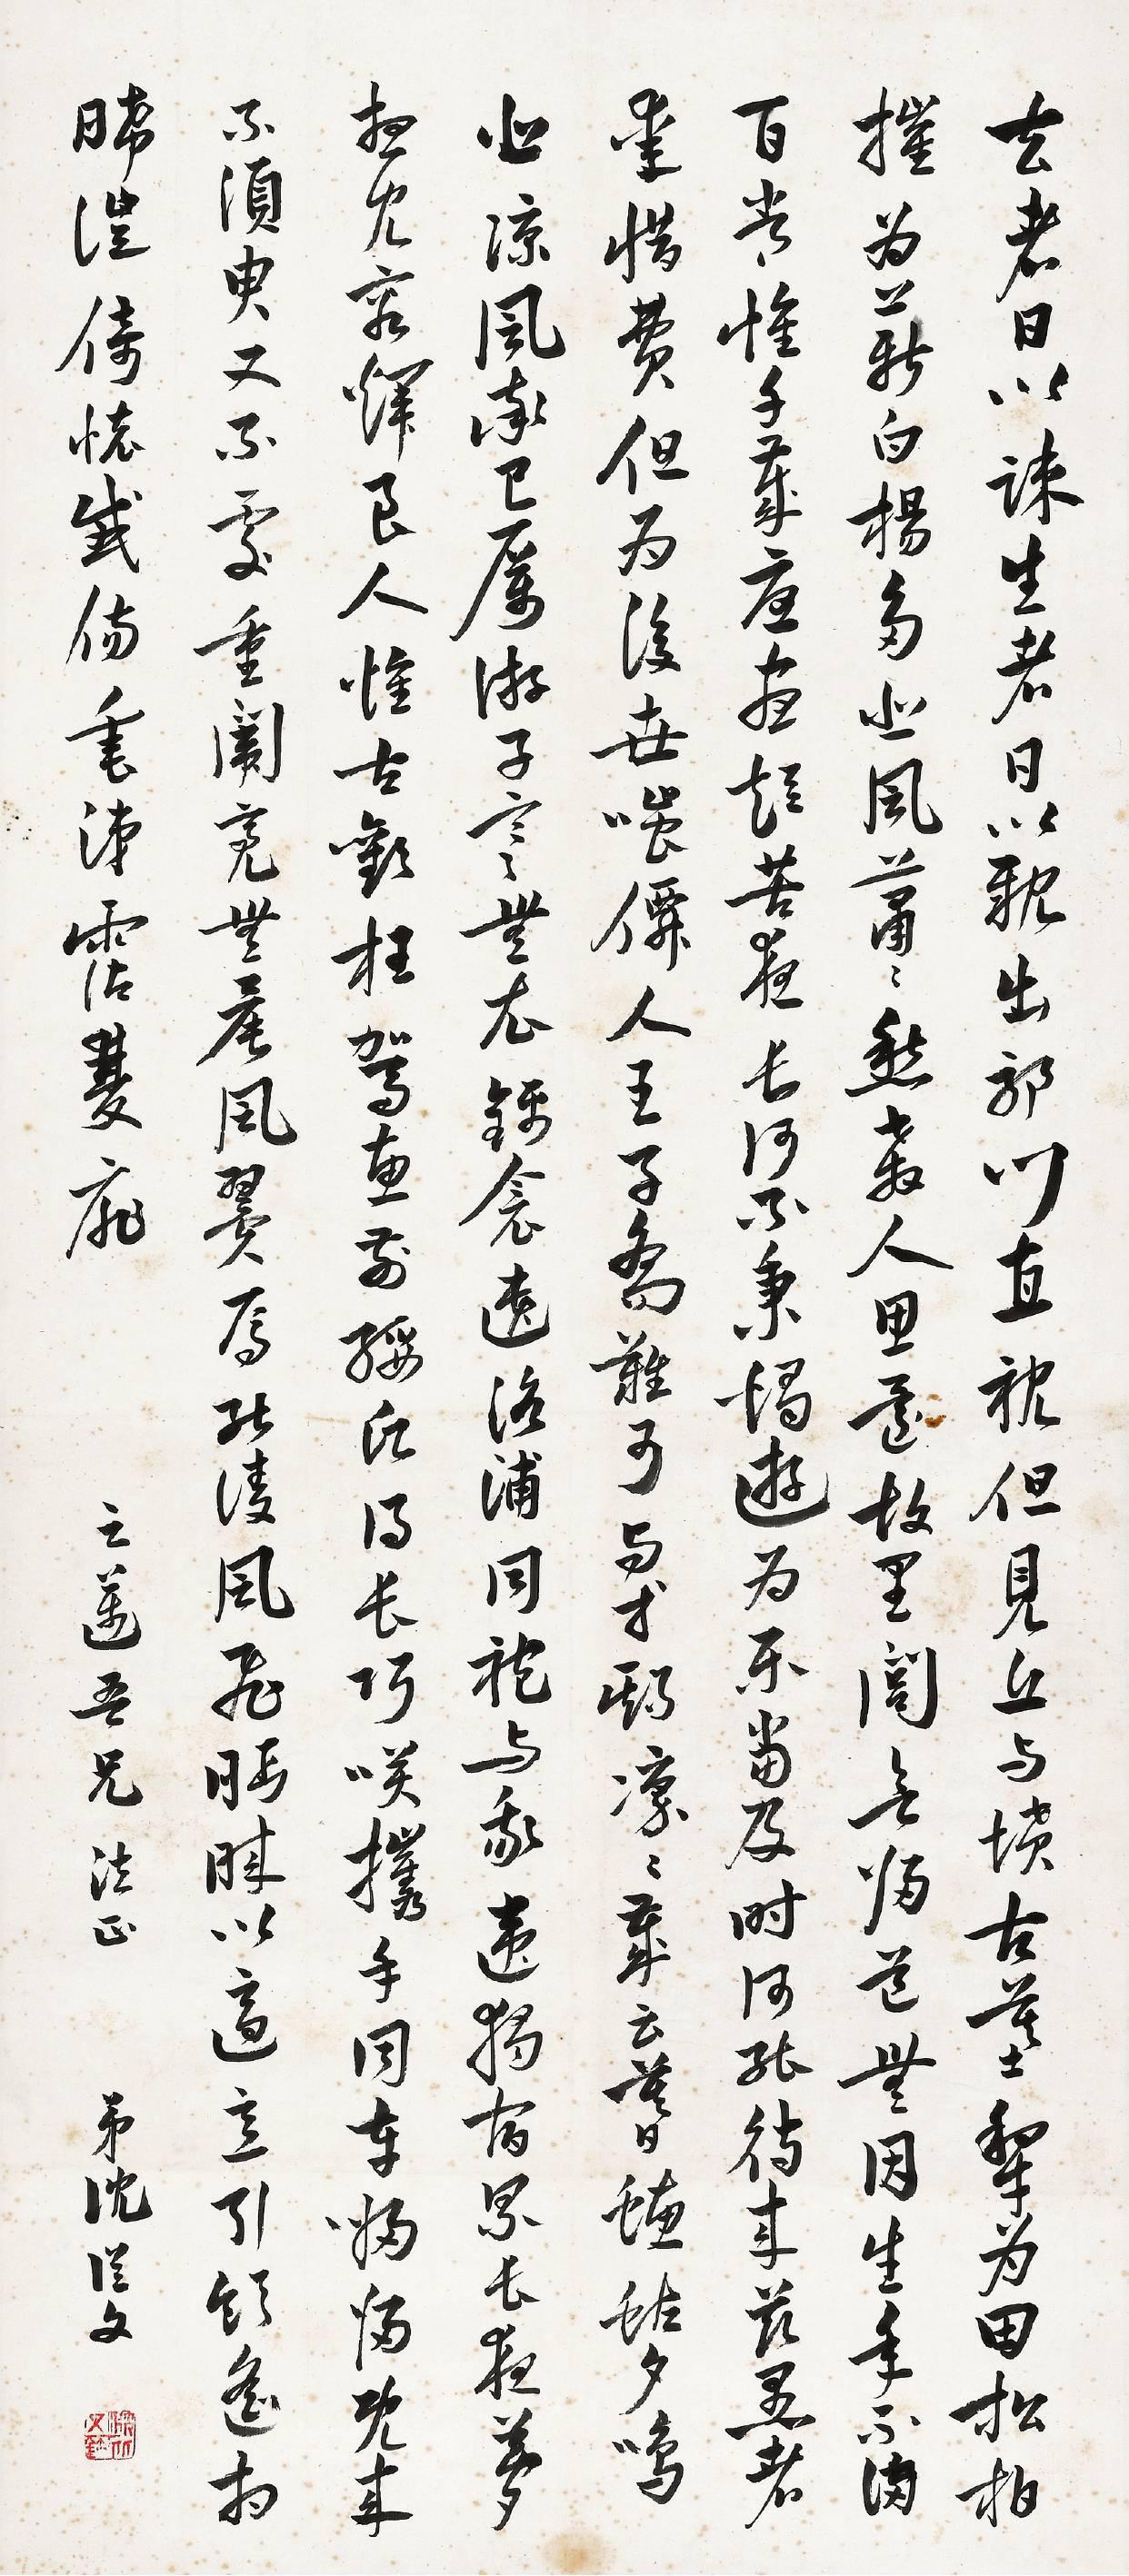 去者日以疎生者日以親出郭門直視但見丘与墳古墓犁为田松柏
摧为薪白楊多悲風蕭〻愁殺人思還故里閭無歸道無因生年不滿
百常懷千歲憂晝短苦夜长何不秉燭遊为乐当及时何能待来茲愚者
爱惜费但为後世嗤僊人王子喬難可与等期凛〻歲云暮日螻蛄夕鳴
悲涼風率已厲游子寒無衣錦衾遺洛浦同袍与我違獨宿累长夜夢
想见容輝良人惟古歡枉駕惠前綏願得长巧笑攜手同車歸歸既来
不須臾又不處重闈亮無晨風翼焉能凌風飛眄睞以適意引領遙相
睎徙倚懷感傷垂涕霑雙扉
云蓮吾兄法正
弟沈從文